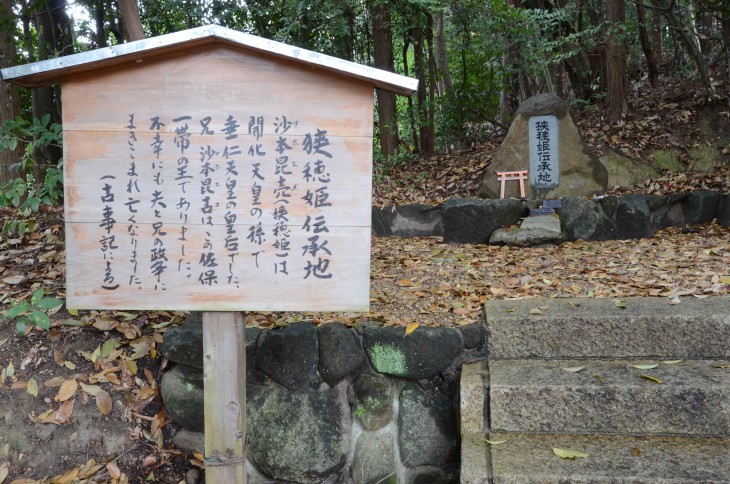 狭穂姫伝承地
沙本毘売(狭穂姫)は
開化天皇の孫で
垂仁天皇の皇后でした。
兄 沙本毘古はこの佐保
一帯の王でありました。
不幸にも夫と兄の政争に
まきこまれ亡くなりました。
(古事記による)
狭穂姫伝承地